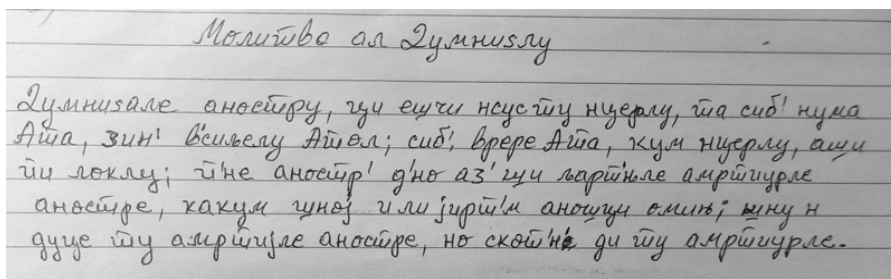 Молитва ал Думниѕлу
Думниѕале аностру, ци ешчи нсус ту нцерлу, та сиб' нума
Ата, зин' в'сиљелу Атол; сиб', врере Ата, кум нцерлу, ащи
ти локлу; п'не аностр' д'но аз' щи љарт'њле амртиурле
аностре, какум щној или јирт'м аношци омињ; шну н
дуце ту амртијле аностре, но скот'н' ди ту амртиурле.